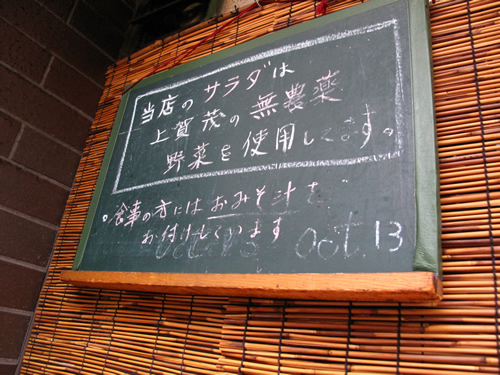 当店のサラダは
上賀茂の無農薬
野菜を使用してます。
。食事の方にはおみそ汁を
お付けしています
oct. 13